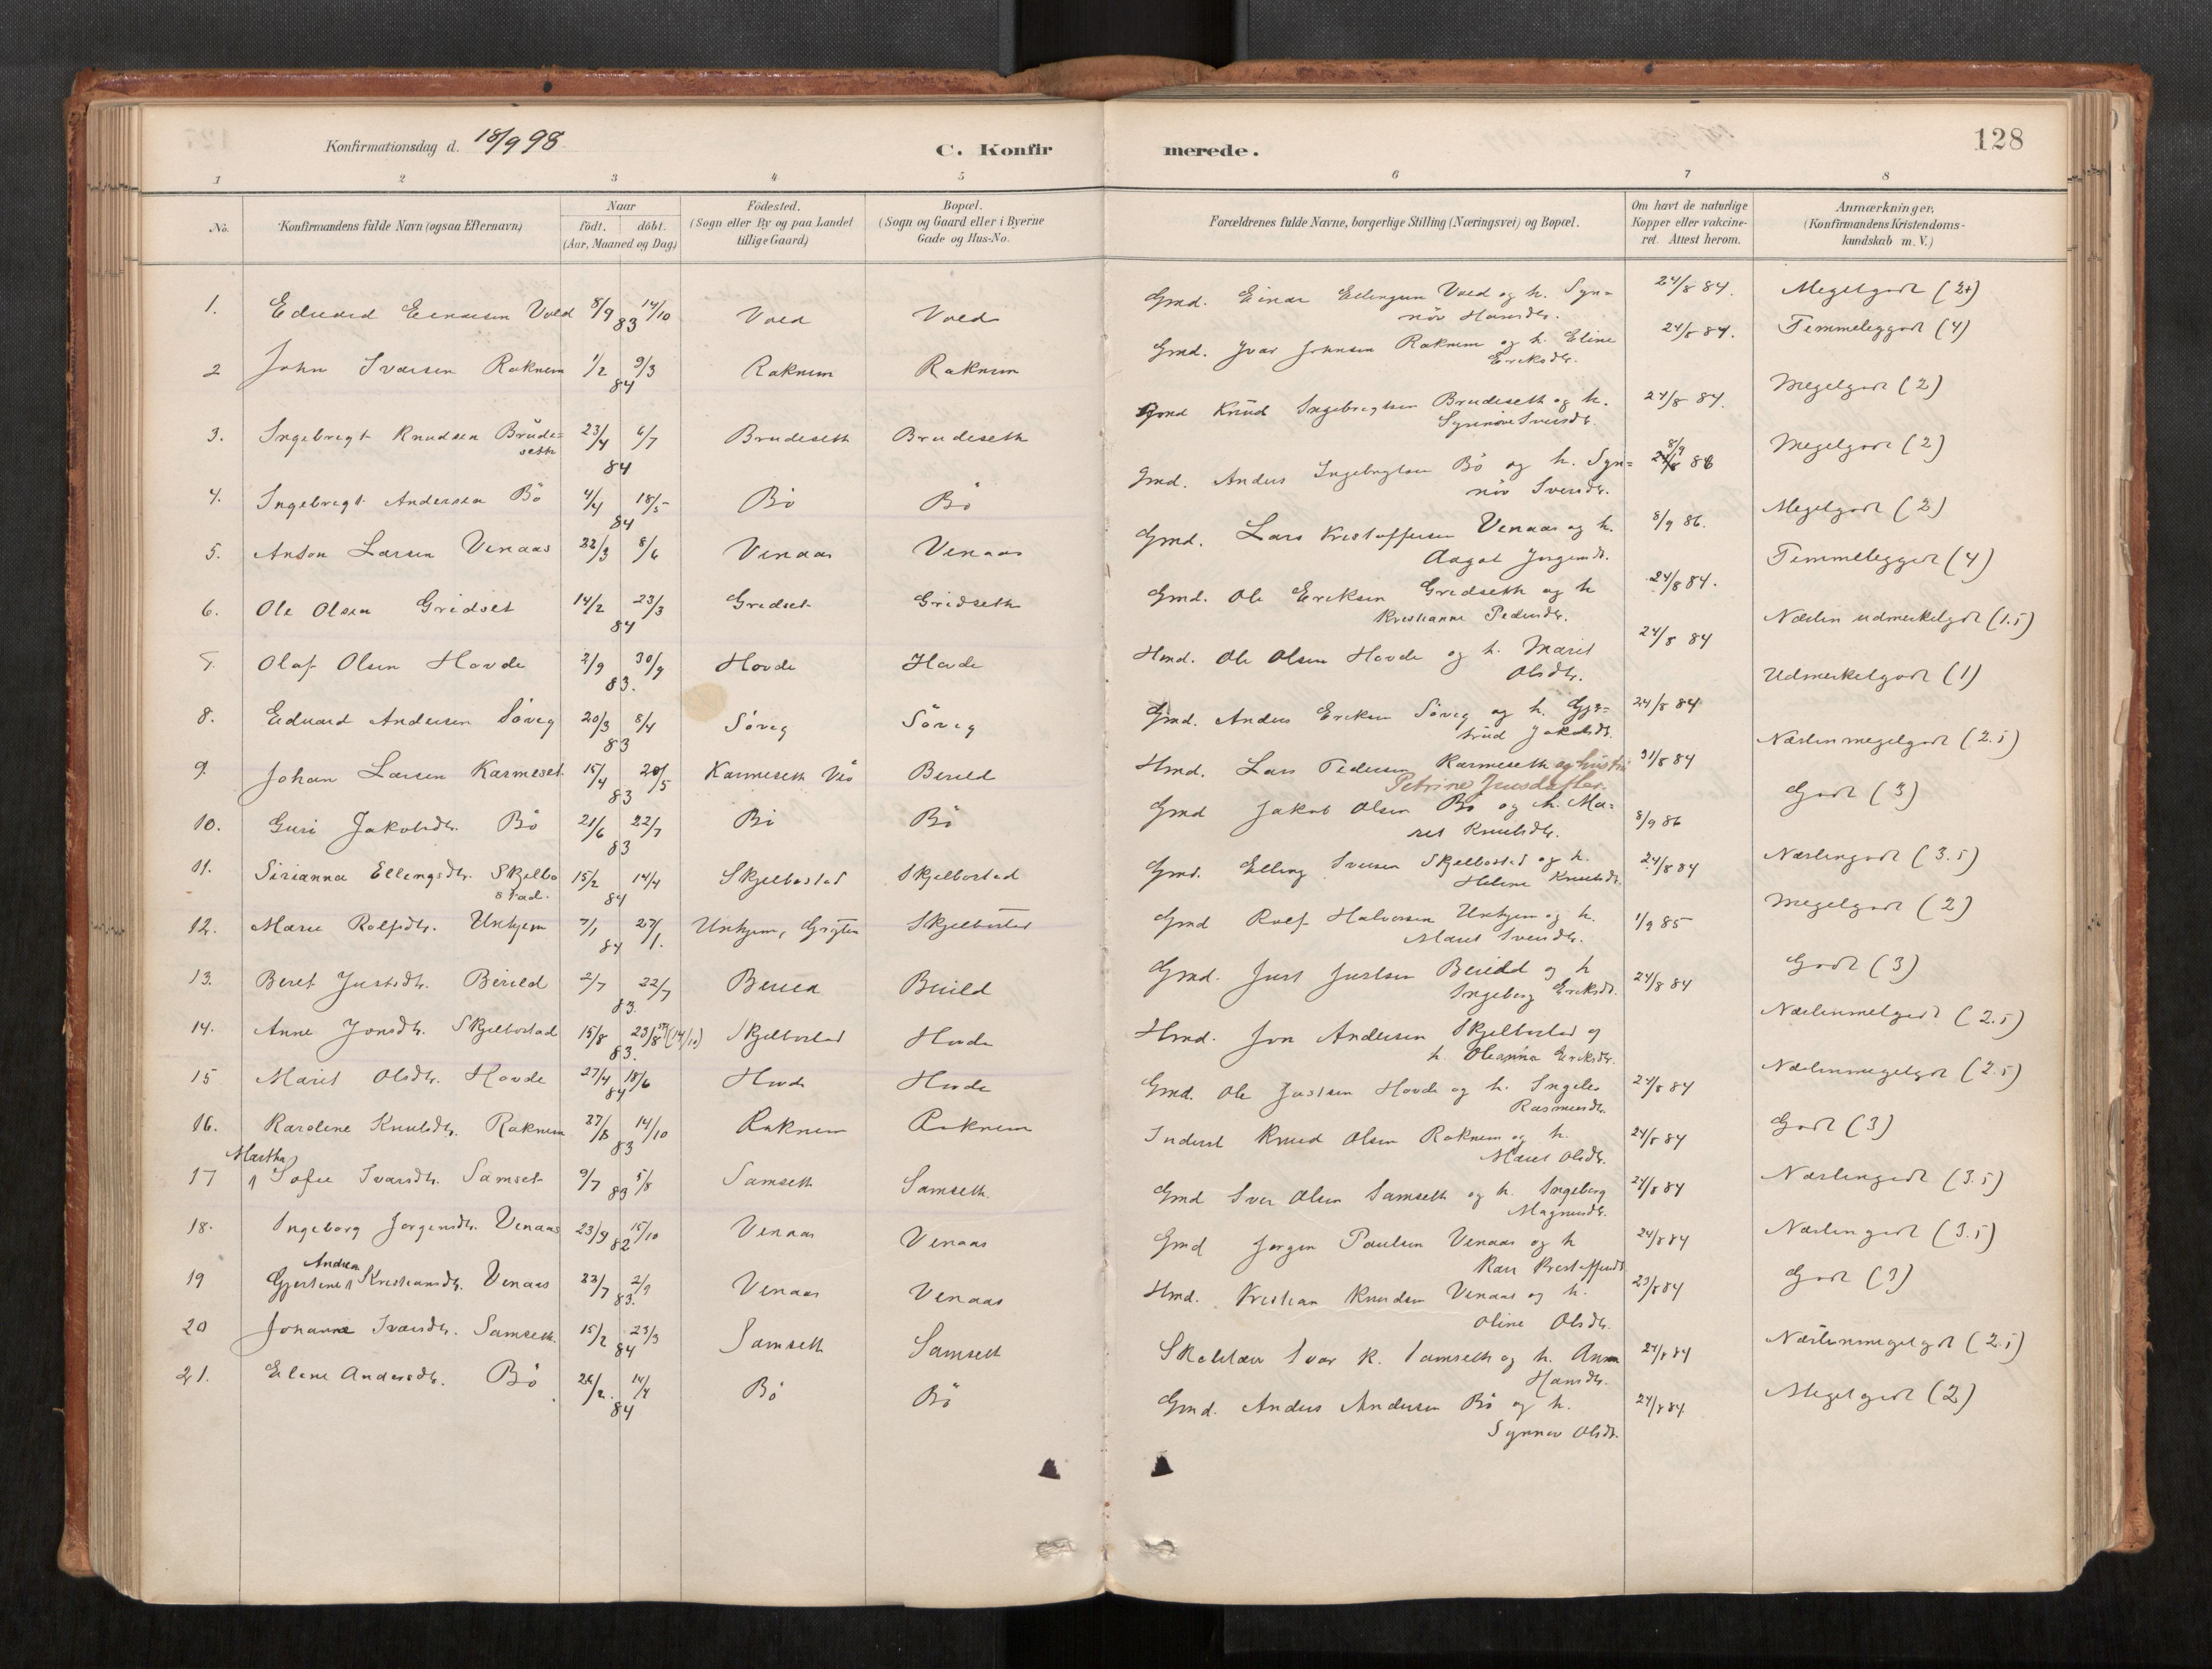 Konfirmationsdag d. 18/9 98
C. Konfirmerede.
128
1 2 3 4 5 6 7 8
No.
Konfirmandens fulde Navn (ogsaa Efternavn)
Naar
födt. döbt.
(Aar, Maaned og Dag)
Födested.
(Sogn eller By og paa Landet
tillige Gaard)
Bopæl.
(Sogn og Gaard eller i Byerne
Gade og Hus-No.
Forældrenes fulde Navne, borgerlige Stilling (Næringsvei) og Bopæl.
Om havt de naturlige
Kopper eller vakcine-
ret. Attest herom.
Anmærkninger,
(Konfirmandens Kristendoms-
kundskab m. V.)
1. Edvard Einarsen Vold 8/9 14/10 83 Vold Vold Gmd. Einar Ellingsen Vold og h. Syn= 24/8 84. Megetgodt (2+)
növ Hansdtr.
2 John Ivarsen Raknem 1/2 9/3 84 Raknem Raknem Gmd. Ivar Johnsen Raknem og h. Eline 24/8 84. Temmeliggodt (4)
Eriksdtr.
3. Ingebrigt Knudsen Brude= 23/4 6/7 Brudeseth Brudeseth Gmd Knud Ingebrigtsen Brudeseth og h. 24/8 84. Megetgodt (2)
seth 84 Synnöve Iversdtr.
4. Ingebrigt Andersen Bö 4/4 18/5 84 Bö Bö Gmd. Anders Ingebrigtsen Bö og h. Syn= 8/9 86 Megetgodt (2)
növ Iversdtr.
5. Anton Larsen Venaas 22/3 8/6 Venaas Venaas Gmd. Lars Kristoffersen Venaas og h. 8/9 86. Megetgodt (2)
Aagot Jörgensdt.
6. Ole Olsen Gridset 14/2 23/3 84 Gridset Gridseth Gmd. Ole Eriksen Gridseth og h 24/8 84. Temmeliggodt (4)
Kristianne Pedersdtr.
7. Olaf Olsen Hovde 2/9 30/9 83. Hovde Hovde Hmd. Ole Olsen Hovde og h. Marit 24/8 84 Næsten udmerketgodt (1.5)
Olsdtr.
8. Edvard Andersen Söveg 20/3 8/4 83 Söveg Söveg Gmd. Anders Eriksen Söveg og h. Gjer= 24/8 84 Udmerketgodt (1)
trud Jakobsdt.
9. Johan Larsen Karmeset 15/4 20/5 83 Karmeseth Berild Hmd. Lars Pedersen Karmeseth og hustru 31/8 84 Næstenmegetgodt (2.5)
Petrine Jensdatter.
10. Guri Jakobsdtr. Bö 21/6 22/7 83 Bö Bö Gmd Jakob Olsen Bö og h. Ma= 8/9 86 Godt (3)
ret Knutsdtr.
11. Sirianna Ellingsdtr. Skjelbo 15/2 14/4 Skjelbostad Skjelbostad Gmd. Elling Iversen Skjelbostad og h. 24/8 84 Næstengodt (3.5)
stad. 84 Helene Knutsdt.
12. Marie Rolfsdtr. Unhjem 7/1 27/1. 84 Unhjem, Grytten Skjelbostad Gmd Rolf Halvorsen Unhjem og h. 1/9 85 Megetgodt (2)
Marit Iversdtr.
13. Beret Justsdtr. Berild 2/7 22/7 83. Berild Berild Gmd. Just Justsen Berild og h 24/8 84 Godt (3)
Ingeborg Eriksdt.
14. Anne Jonsdtr. Skjelbostad 15/8 23/8 (14/10) 83. Skjelbostad Hovde Hmd. Jon Andersen Skjelbostad og Næstenmetgodt (2.5)
h. Oleanna Eriksdtr.
15 Marit Olsdtr. Hovde 27/4 18/6 84 Hovde Hovde Gmd. Ole Justsen Hovde og h. Ingeler 24/8 84 Næstenmegetgodt (2.5)
Rasmusdtr.
16. Karoline Knutsdtr. Raknem 27/8 14/10 83 Raknem Raknem Inderst Knud Olsen Raknem og h. 24/8 84 Godt (3)
Marit Olsdtr.
Martha
17 Sofie Ivarsdtr. Samset 9/7 5/8 83 Samseth Samseth. Gmd Iver Olsen Samseth og h. Ingeborg 24/8 84 Næstengodt (3.5)
Magnusdtr.
18. Ingeborg Jørgensdtr. Venaas 23/9 15/10 82 Venaas Venaas Gmd Jørgen Paulsen Venaas og h 24/8 84 Næstengodt (3.5)
Kari Kristoffersdt
Andrea
19 Gjertine Kristiansdtr. Venaas 22/7 2/9 83. Venaas Venaas Hmd. Kristian Knudsen Venaas og h. 23/8 84 Godt (3)
Oline Olsdtr.
20 Johanne Ivarsdtr. Samseth. 15/2 23/3 84 Samseth Samseth Skolelærer Ivar K. Samseth og h. Anna 24/8 84 Næstenmegetgodt (2.5)
Hansdtr.
21. Elene Andersdtr. Bö 26/2. 14/4 84 Bö Bö Gmd. Anders Andersen Bö og h. 24/8 84 Megetgodt (2)
Synnev Olsdt.